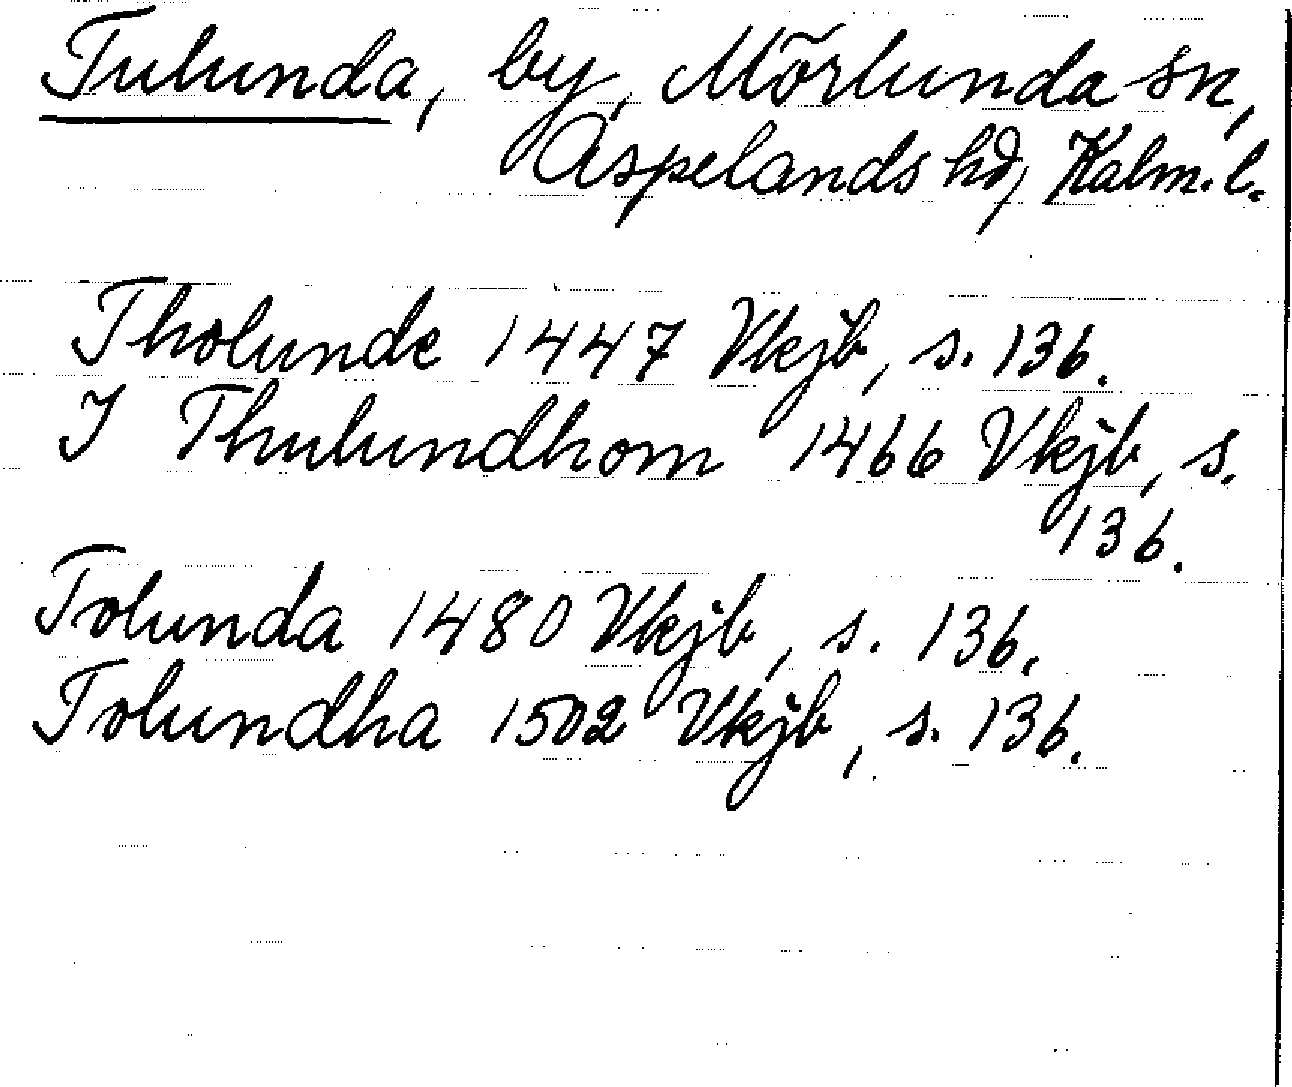 Tulunda, by, Mörlunda sn,
Aspelands hd, Kalm. l.
Tholunde 1447 Vkjb, s. 136.
I Thulundhom 1466 Vkjb, s.
136.
Tolunda 1480 Vkjb, s. 136.
Tolundha 1502 Vkjb, s. 136.